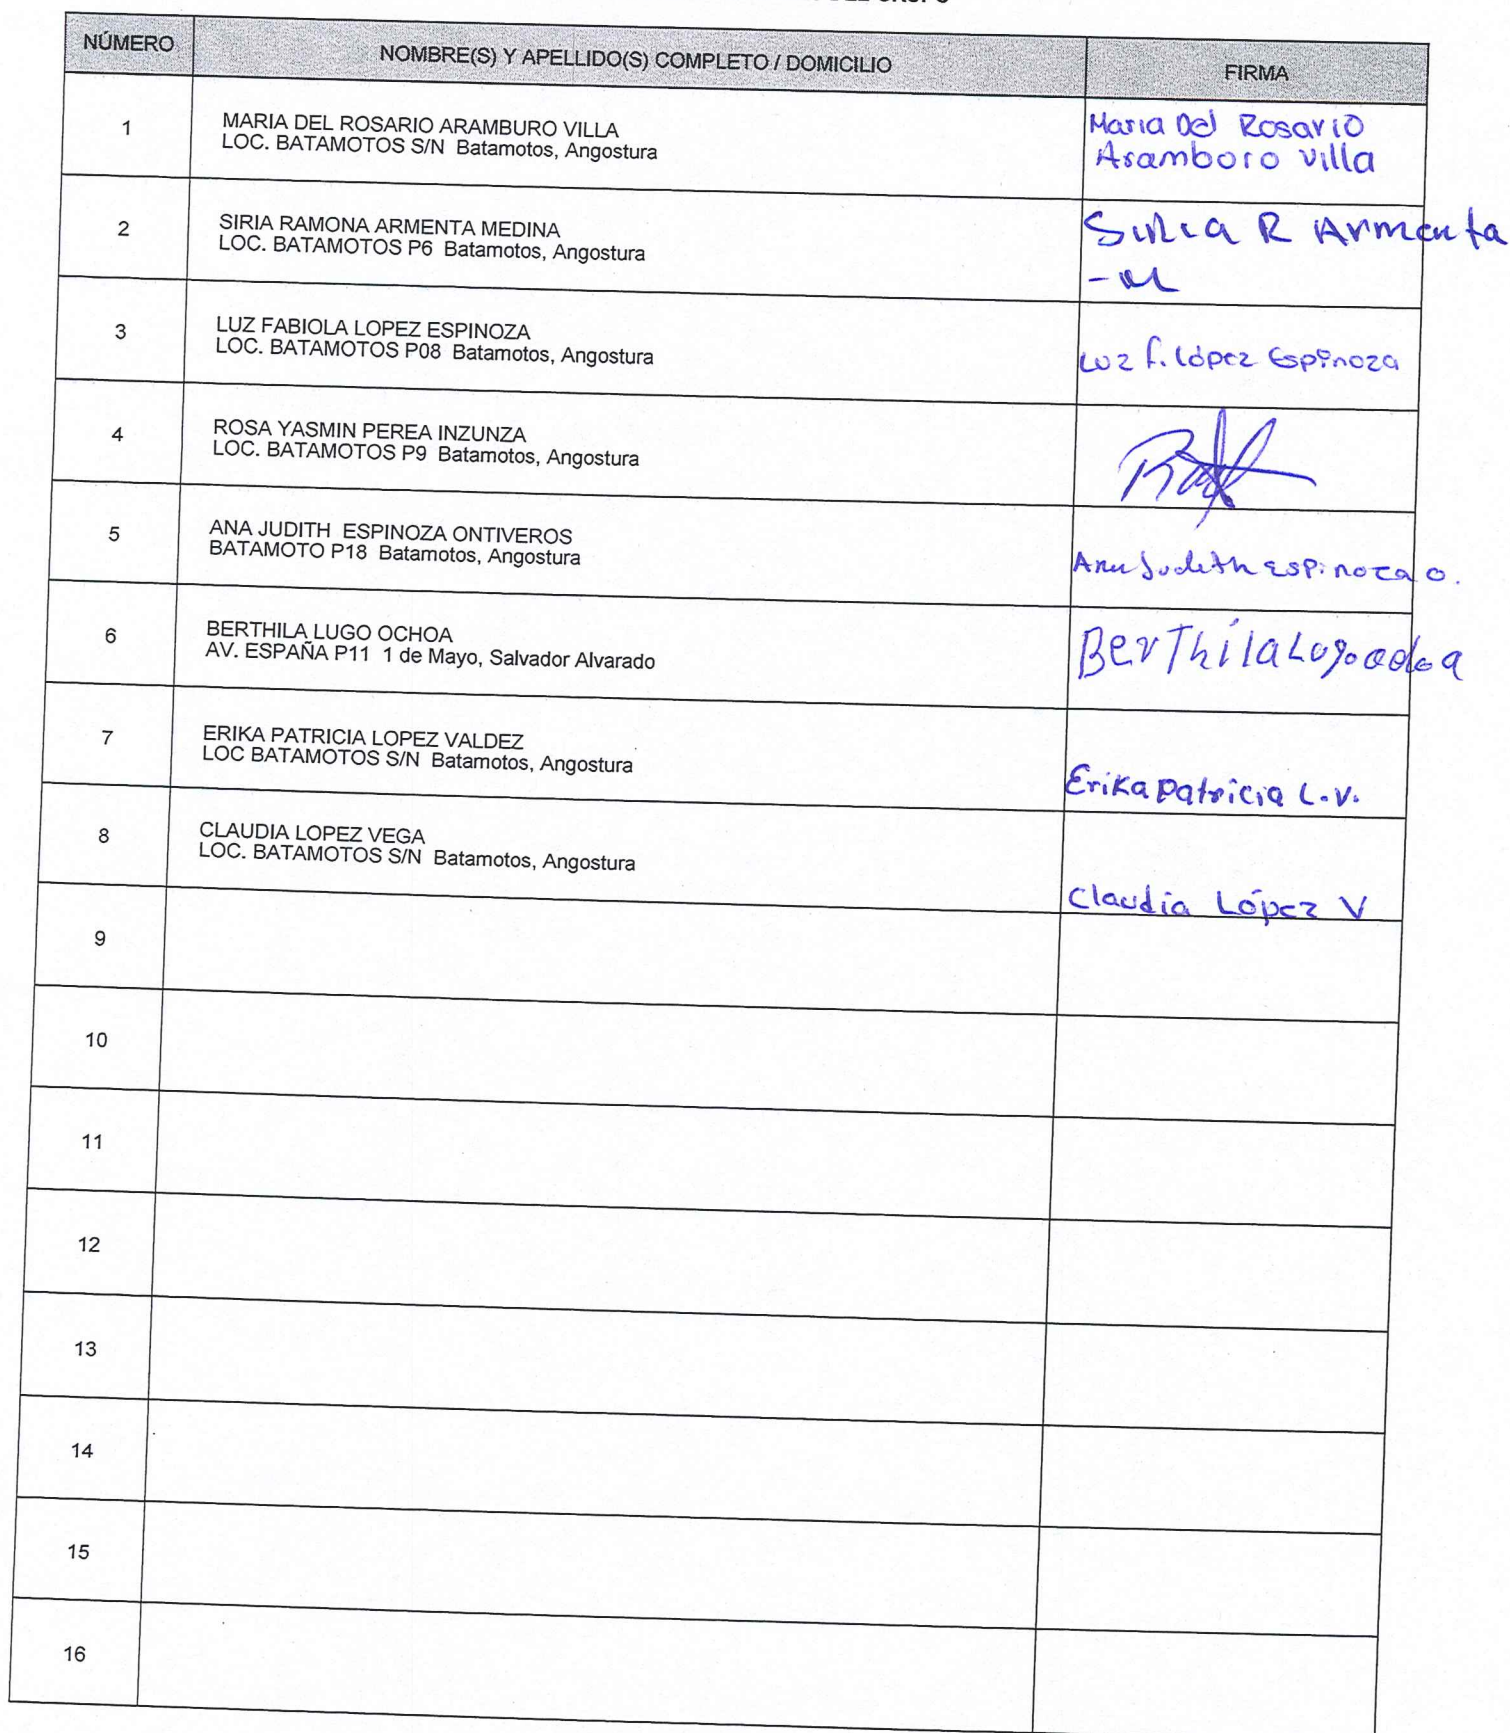 NÚMERO
NOMBRE(S) Y APELLIDO(S) COMPLETO / DOMICILIO
FIRMA
1
MARIA DEL ROSARIO ARAMBURO VILLA
LOC. BATAMOTOS S/N Batamotos, Angostura
Maria Del Rosario
Aramboro villa
2
SIRIA RAMONA ARMENTA MEDINA
LOC. BATAMOTOS P6 Batamotos, Angostura
Siria R Armenta
-M
3
LUZ FABIOLA LOPEZ ESPINOZA
LOC. BATAMOTOS P08 Batamotos, Angostura
Luz f. López Espinoza
4
ROSA YASMIN PEREA INZUNZA
LOC. BATAMOTOS P9 Batamotos, Angostura
5
ANA JUDITH ESPINOZA ONTIVEROS
BATAMOTO P18 Batamotos, Angostura
Ana Judith Espinoza O.
6
BERTHILA LUGO OCHOA
AV. ESPAÑA P11 1 de Mayo, Salvador Alvarado
Berthila Lugo
7
ERIKA PATRICIA LOPEZ VALDEZ
LOC BATAMOTOS S/N Batamotos, Angostura
Erika patricia L.V.
8
CLAUDIA LOPEZ VEGA
LOC. BATAMOTOS S/N Batamotos, Angostura
Claudia López V
9
10
11
12
13
14
15
16